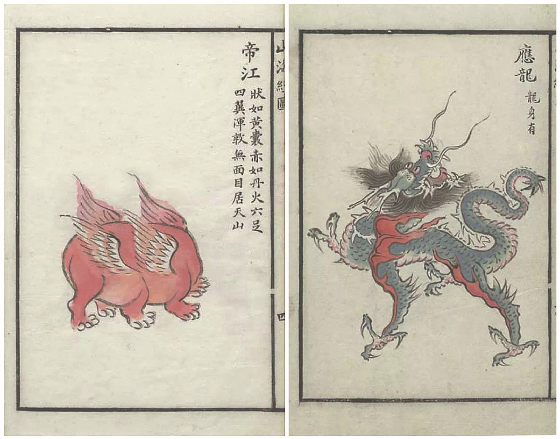 帝江
狀如黃囊赤如丹火六足
四翼渾敦無面目居天山
山海經圖
四
應龍
龍身有